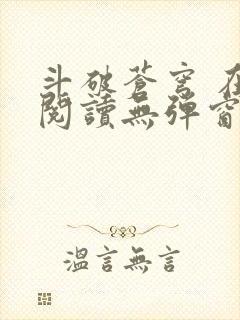 斗破蒼穹 在
閱讀無彈窗
溫言無言